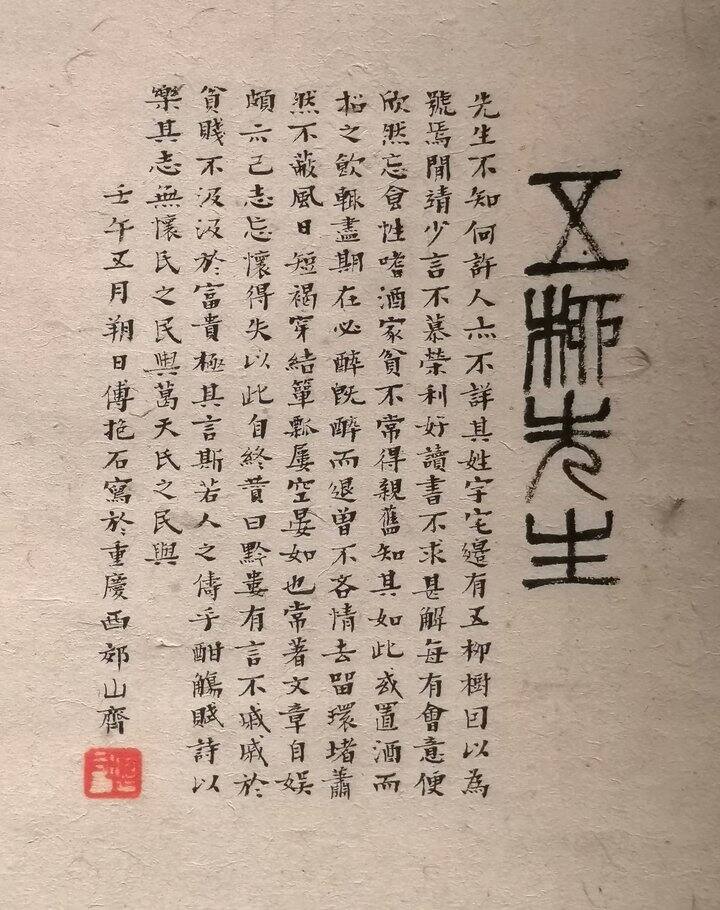 五柳先生
先生不知何許人亦不詳其姓字宅邊有五柳樹因以為
號焉閒靖少言不慕榮利好讀書不求甚解每有會意便
欣然忘食性嗜酒家貧不常得親舊知其如此或置酒而
招之飲輒盡期在必醉既醉而退曾不吝情去留環堵蕭
然不蔽風日短褐穿結簞瓢屢空晏如也常著文章自娛
頗示己志忘懷得失以此自終贊曰黔婁有言不戚戚於
貧賤不汲汲於富貴極其言斯若人之儔乎酣觴賦詩以
樂其志無懷氏之民與葛天氏之民與
壬午五月朔日傅抱石寫於重慶西郊山齊